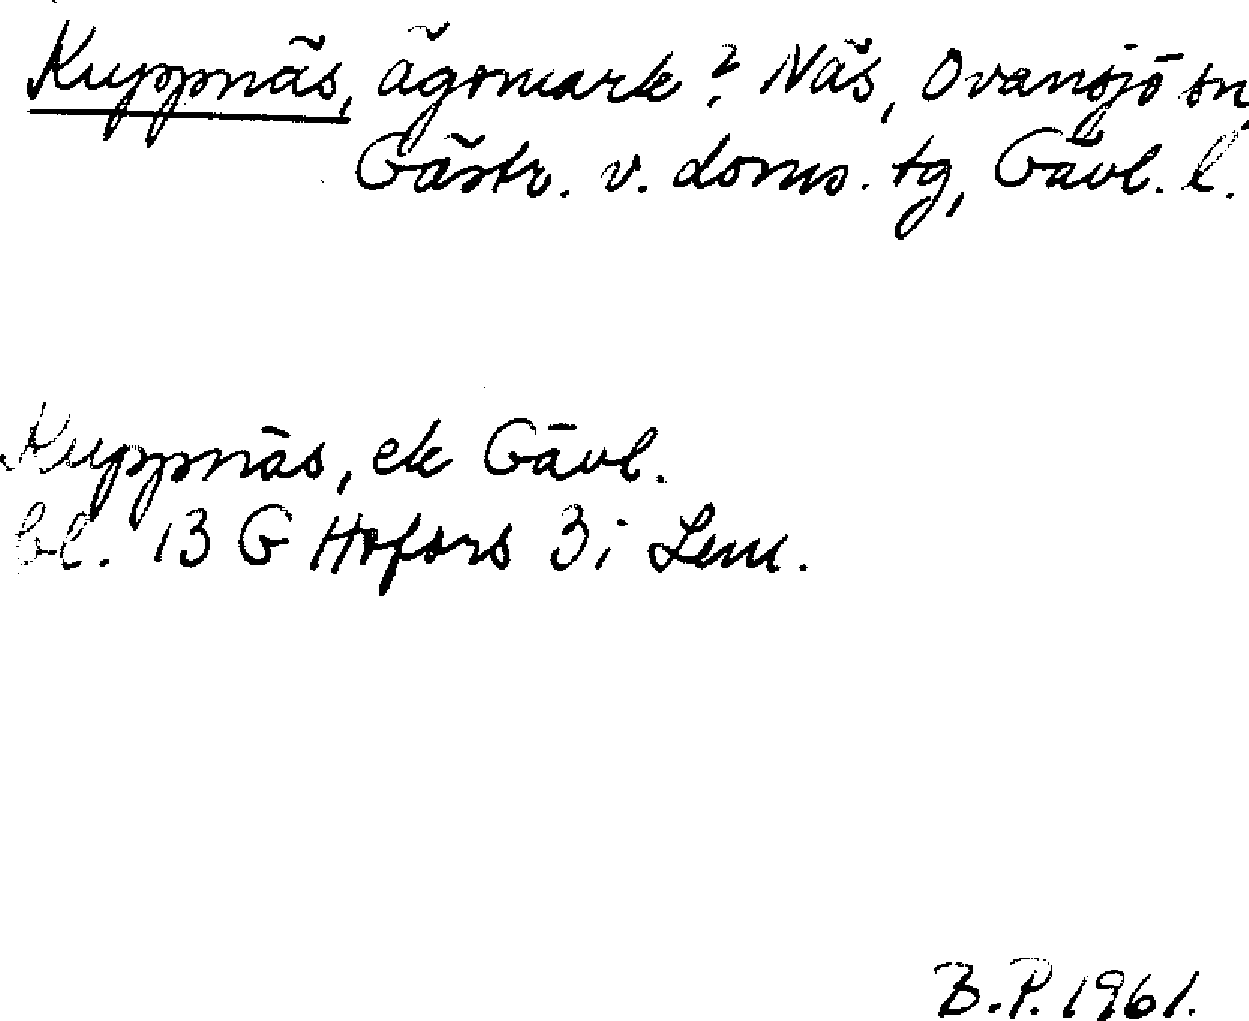 Kuppnäs, ägomark? Näs, Ovansjö sn,
Gästr. v. doms. tg, Gävl. l.
Kuppnäs, ek Gävl.
bl. 13 G Hofors 3i Lem.
B.P. 1961.